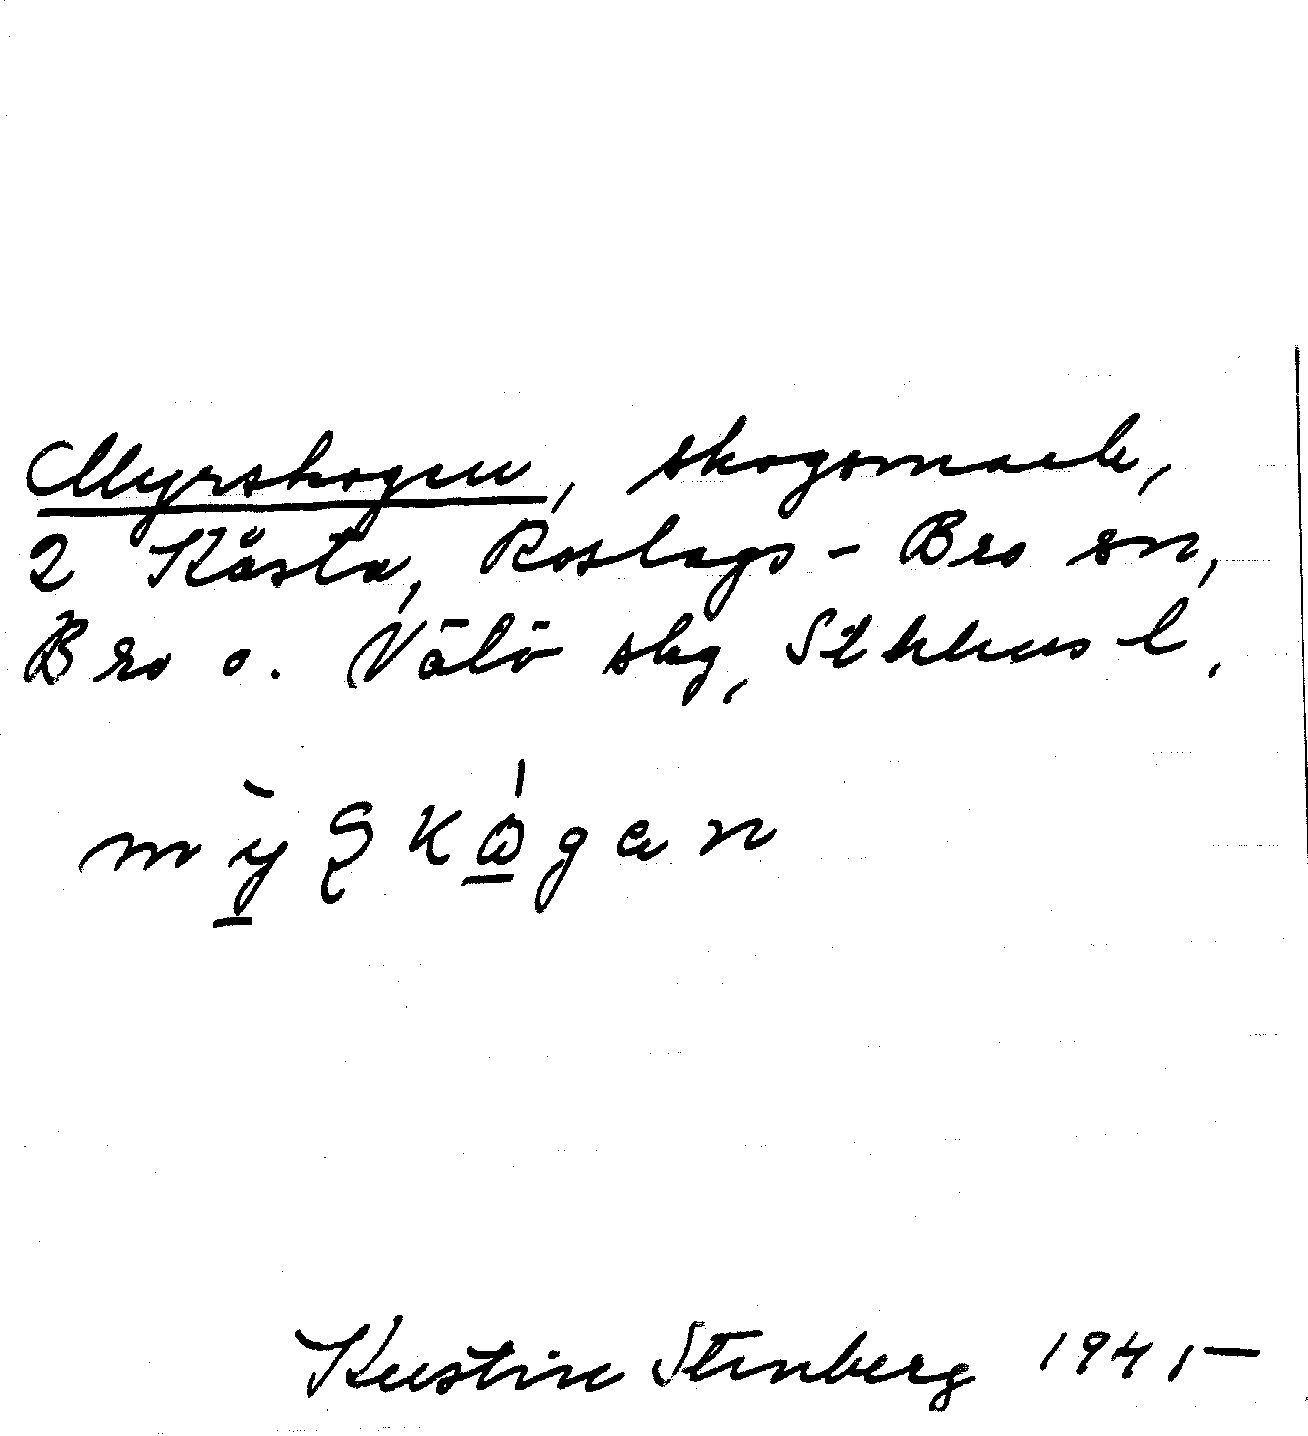 Myrskogen, skogsmark,
2 Kåsta, Roslags-Bro sn,
Bro o. Vätö skg, Sthlms l.
mỳʂkógan
Kerstin Stenberg 1945